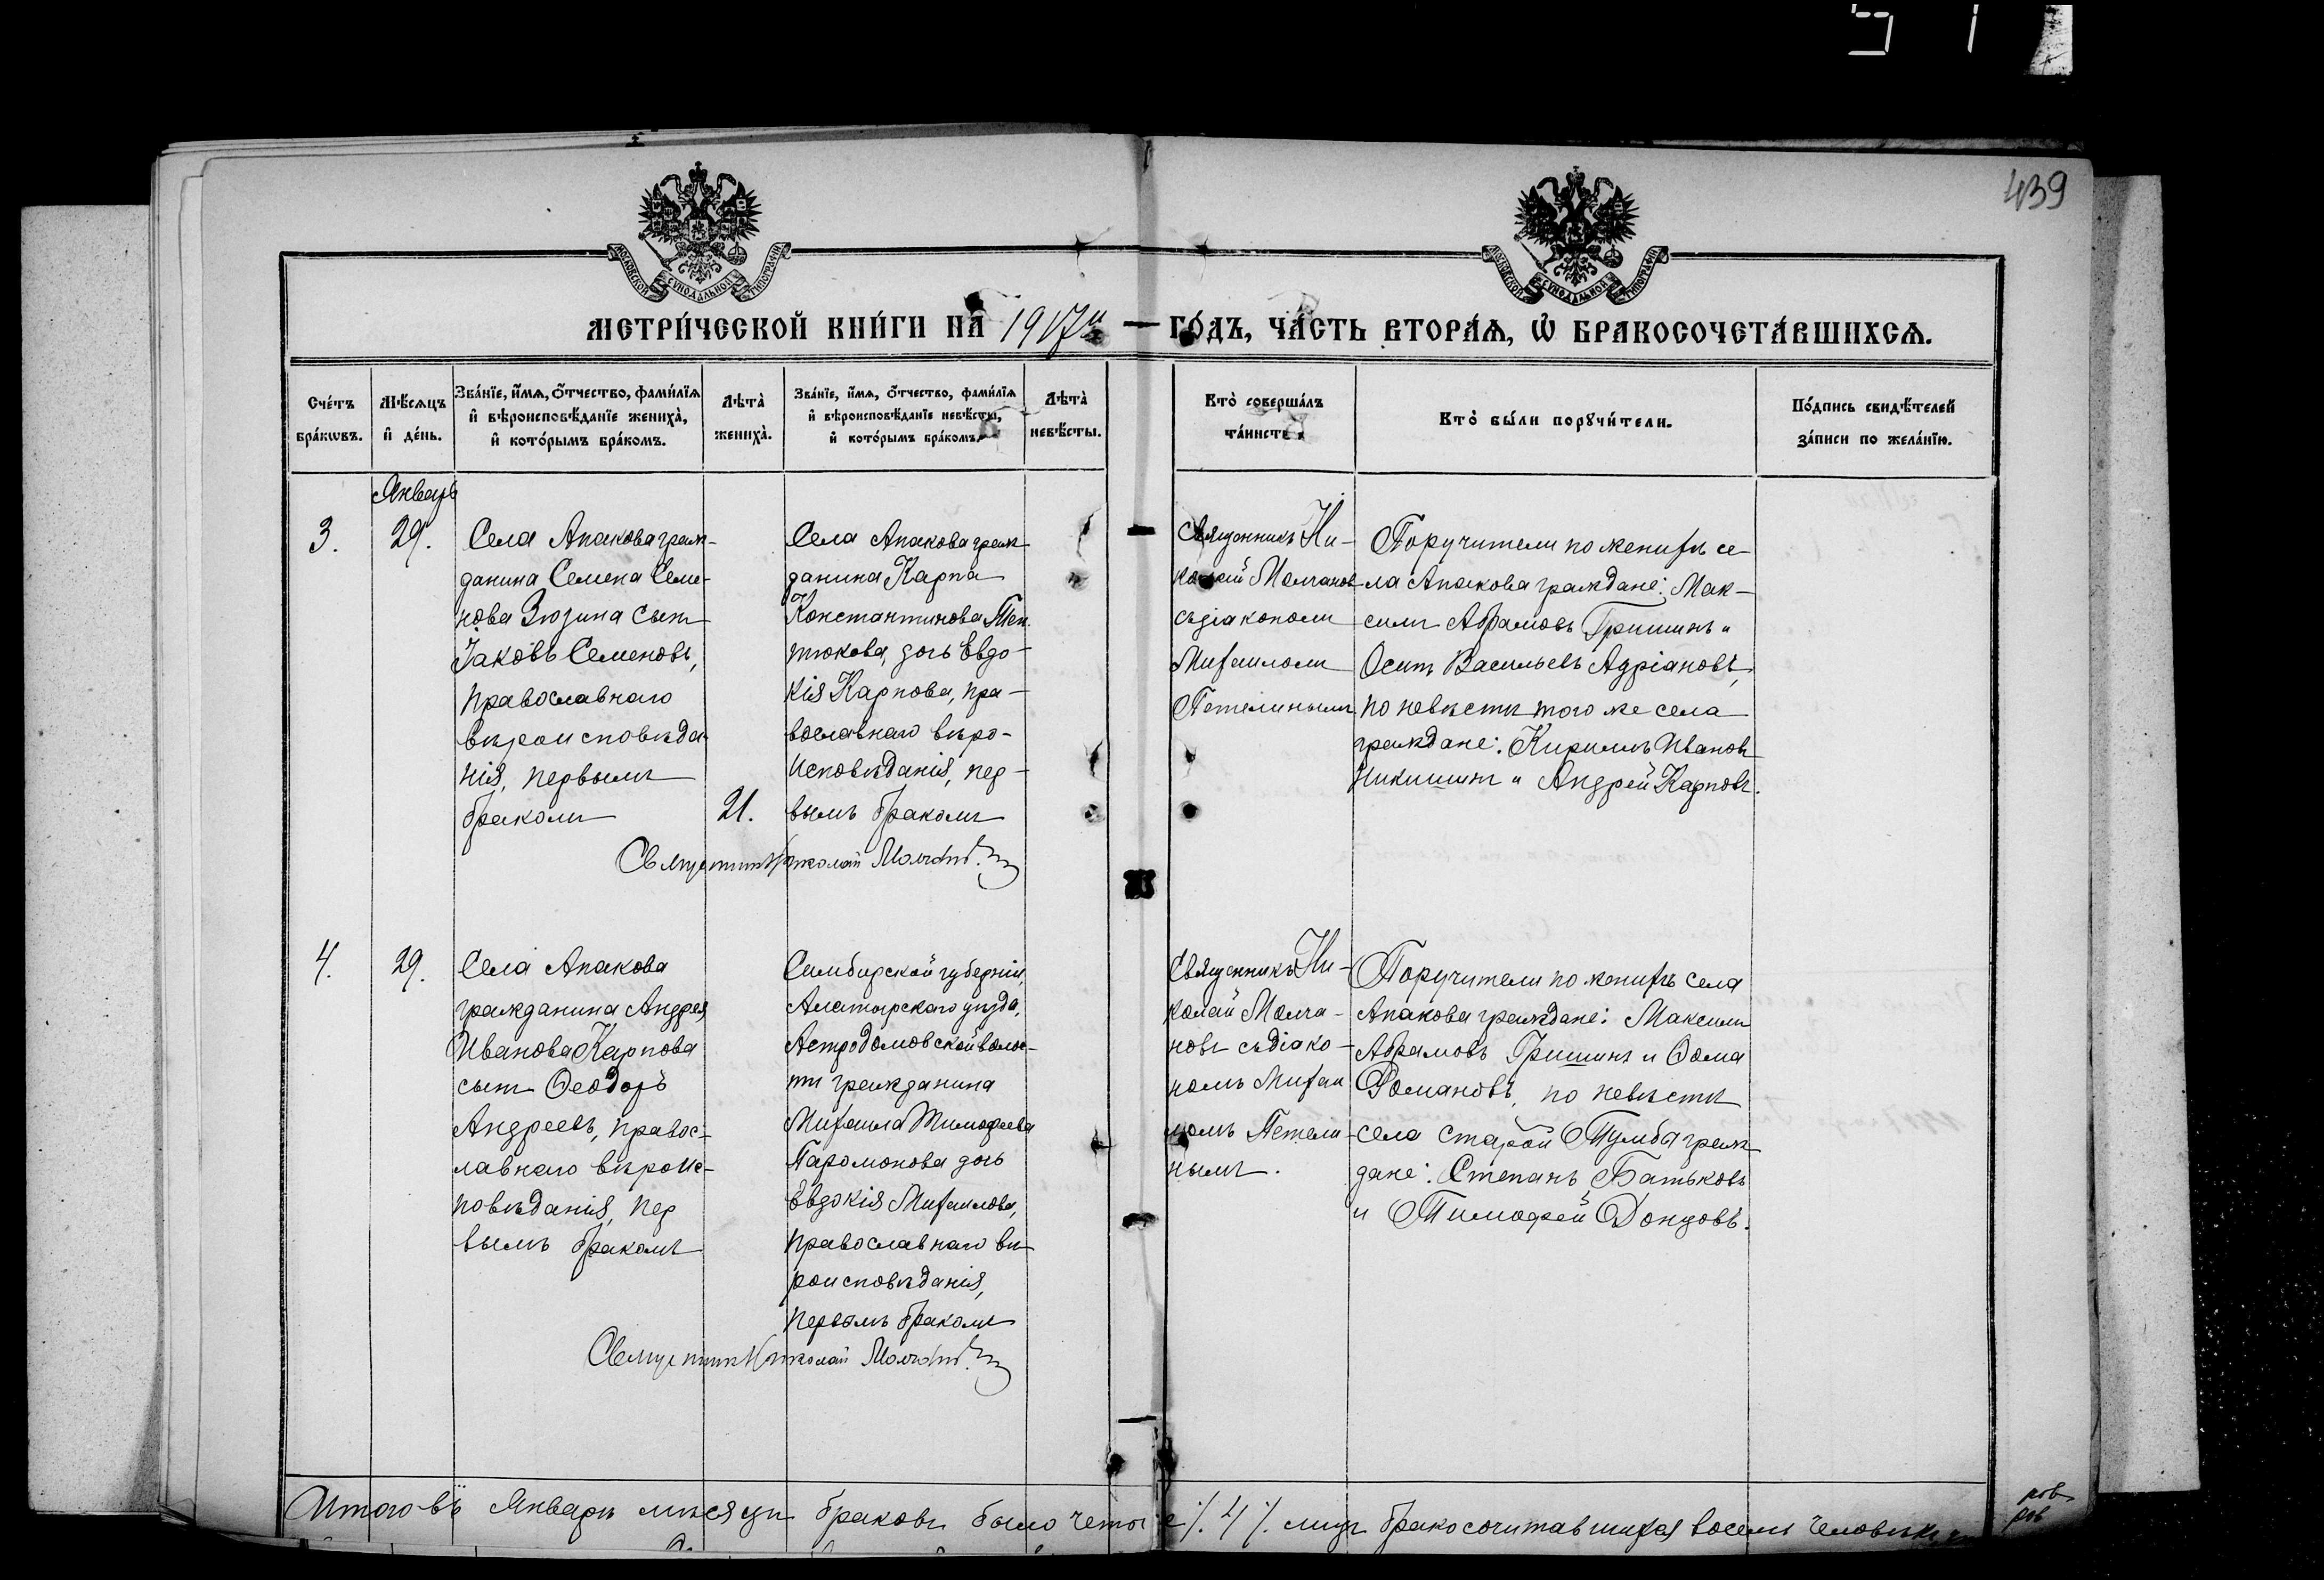 439
МОСКОВСКОЙ СѴНОДАЛЬНОЙ ТИПОГРАФІИ
МОСКОВСКОЙ СѴНОДАЛЬНОЙ ТИПОГРАФІИ
МЕТРИ́ЧЕСКОЙ КНИ́ГИ НА 1917й — ГО́ДЪ, ЧА́СТЬ ВТОРА́Я, Ѿ БРАКОСОЧЕТА́ВШИХСЯ.
Сче́тъ бра́кѡвъ.
Мѣ́сяцъ и де́нь.
Зва́нїе, и́мя, о́тчество, фами́лїя и вѣроисповѣ́данїе жениха̀, и кото́рымъ бра́комъ.
Лѣта̀ жениха̀.
Зва́нїе, и́мя, о́тчество, фами́лїя и вѣроисповѣ́данїе невѣ́сты, и кото́рымъ бра́комъ.
Лѣта̀ невѣ́сты.
Кто̀ соверша́лъ та́инств
Кто̀ бы́ли порꙋчи́тели.
По́дпись свидѣ́телей за́писи по жела́нїю.
Январь
3.
29.
Села Апакова граж-
данина Семена Семе-
нова Зюзина сынъ
Іаковъ Семеновъ,
православнаго
вѣроисповѣда-
нія, первымъ
бракомъ
21.
Села Апакова граж
данина Карпа
Константинова
тюкова, дочь Евдо-
кія Карпова, пра-
вославнаго вѣро-
исповѣданія, пер-
вымъ бракомъ
Священникъ Николай Молчановъ
Священникъ Ни-
колай Молчановъ
съ діакономъ
Михаиломъ
Петелинымъ
Поручители по женихѣ се-
ла Апакова граждане: Мак-
симъ Абрамовъ Гришинъ и
Осипъ Васильевъ Адріановъ,
по невѣстѣ того же села
граждане: Кириллъ Ивановъ
Никишинъ и Андрей Карповъ.
4.
29.
Села Апакова
гражданина Андрея
Иванова Карпова
сынъ Ѳеодоръ
Андреевъ, правос-
лавнаго вѣроис-
повѣданія, пер
вымъ бракомъ
Симбирской губерніи,
Алатырскаго уѣзда,
Астродомовской волос-
ти гражданина
Михаила Тимофеева
Парамонова дочь
Евдокія Михаилова,
православнаго вѣ-
роисповѣданія,
первымъ бракомъ
Священникъ Николай Молчановъ
Священникъ Ни-
колай Молча-
новъ съ діако-
номъ Михаи
ломъ Петели-
нымъ.
Поручители по женихѣ села
Апакова граждане: Максимъ
Абрамовъ Гришинъ и Ѳома
Романовъ, по невѣстѣ
села Старой Тумбы граж
дане: Степанъ Батьковъ
и Тимофей Донцовъ.
Итого въ Январѣ мѣсяцѣ браковъ было четыре ./. 4 ./. лицъ бракосочитавшихся восемь человѣкъ